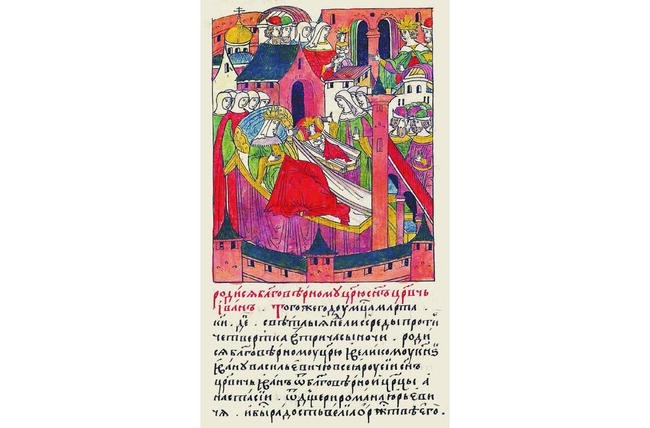 родисѧ благовѣрномꙋ црю сн҃ъ црв҃чь
іванъ . Тогожегодꙋ мц҃а марта
кн҃ . де҃ . свѣтлыѧ нєли срєды проти
чєтвєртка вт҃ри часы ночи . роди
сѧ благовѣрномꙋ црю и великомꙋ кнѕ҃ю
ивану васильевичю всеа рꙋсии сн҃ъ
црвичь иванъ ѿ благовѣрной црцы а
настасии . ѿ дщери романа юрьеви
чѧ . и бы радость велїѧ ѡ ржтвѣ єго .